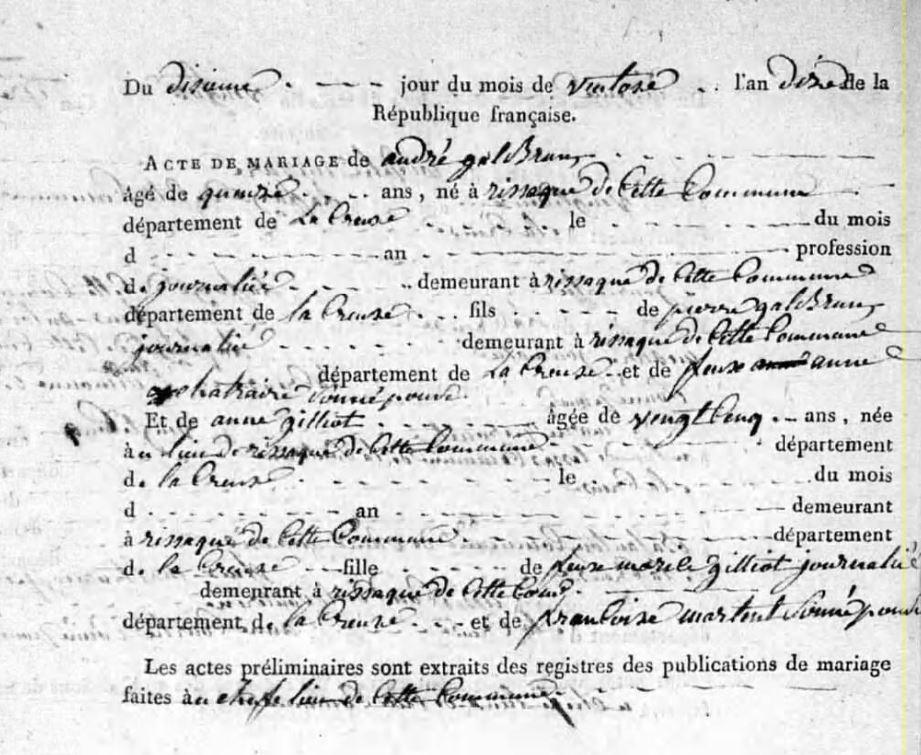 Du disieme jour du mois de ventose l'an dix de la
République française.
ACTE DE MARIAGE de andré galbrun
âgé de quinze ans, né à rissaque de Cette Commune
département de La Creuse le du mois
d an profession
de journaliée demeurant à rissaque de Cette Commune
département de la Creuse fils de pierre galbrun
journalié demeurant à rissaque de Cette Commune
département de La Creuse et de feue anne
Et de anne gilliot âgée de vengt Cenq ans, née
àu lieu de rissaque de Cette Commune département
de la Creuse le du mois
d an demeurant
à rissaque de Cette Commune département
de la Creuse fille de feue gilliot journalié
demeurant à rissaque de Cette Comu
département de la Creuse et de francoise
Les actes préliminaires sont extraits des registres des publications de mariage
faites àu cheffe lieu de Cette Commune